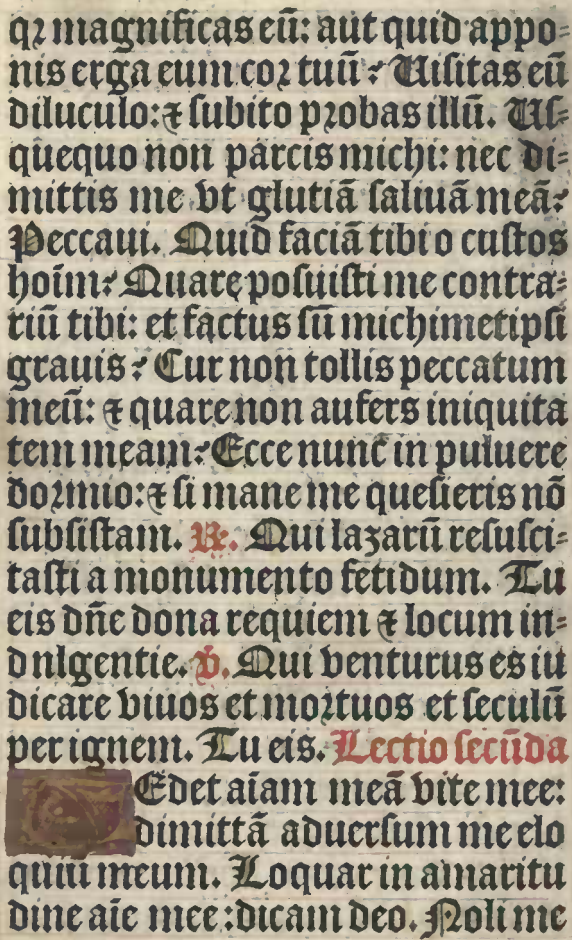 qꝛ magnificas eū: aut quid appo⸗
nis erga eum coꝛ tuū? Uisitas eū
diluculo: ⁊ subito pꝛobas illū. Us⸗
quequo non parcis michi: nec di⸗
mittis me vt glutiā saliuā meā?
Peccaui. Quid faciā tibi o custos
hoīm? Quare posuisti me contra⸗
riū tibi: et factus sū michimetipsi
grauis? Cur non tollis peccatum
meū: ⁊ quare non aufers iniquita
tem meam? Ecce nunc in puluere
doꝛmio: ⁊ si mane me quesieris nō
subsistam. ℟. Qui lazarū resusci⸗
tasti a monumento fetidum. Tu
eis dn̄e dona requiem ⁊ locum in⸗
dnlgentie. ℣. Qui venturus es iu
dicare viuos et moꝛtuos et seculū
per ignem. Tu eis. Lectio secūda
Edet aīam meā vite mee:
dimittā aduersum me elo
quiū meum. Loquar in amaritu
dine aīe mee: dicam deo. Noli me